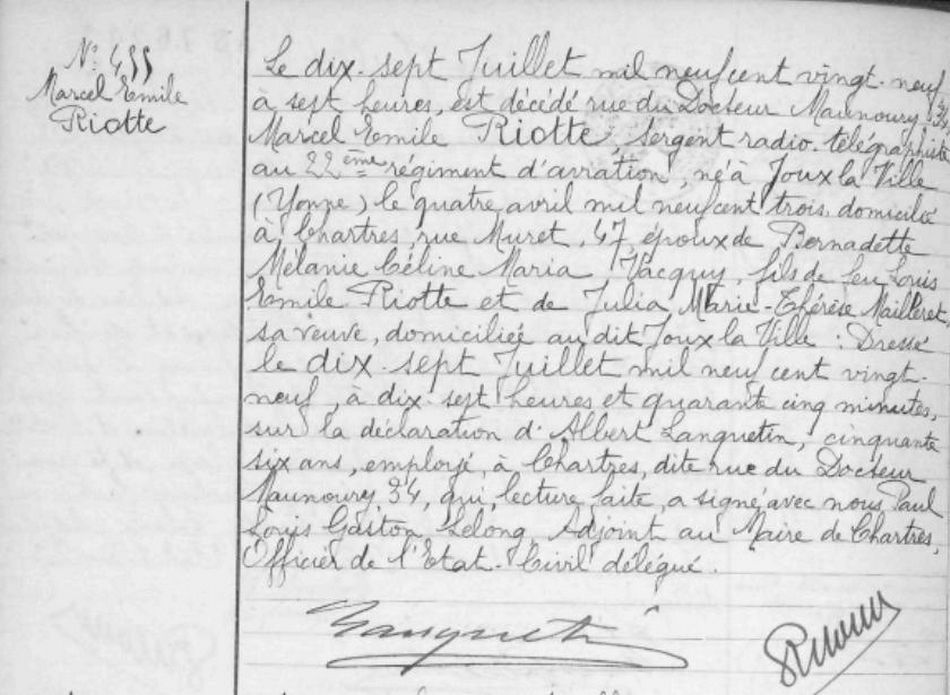 N° 455
Marcel Emile
Riotte
Le dix-sept Juillet mil neuf cent vingt-neuf
à sept heures, est décédé rue du Docteur Maunoury 34
Marcel Emile Riotte, sergent radio-télégraphiste
au 22ème régiment d'aviation, né à Joux la Ville
(Yonne) le quatre avril mil neuf cent trois, domicilié
à Chartres, rue Muret, 47, époux de Bernadette
Mélanie Céline Maria Vacquy, fils de feu Louis
Emile Riotte et de Julia Marie-Thérèse Mailleret,
sa veuve, domiciliée au dit Joux la Ville : Dressé
le dix-sept Juillet mil neuf cent vingt-
neuf, à dix-sept heures et quarante cinq minutes,
sur la déclaration d'Albert Languetin, cinquante
six ans, employé, à Chartres, dite rue du Docteur
Maunoury 34, qui, lecture faite, a signé avec nous, Paul
Louis Gaston Lelong, Adjoint au Maire de Chartres,
Officier de l'Etat-Civil délégué.
Languetin